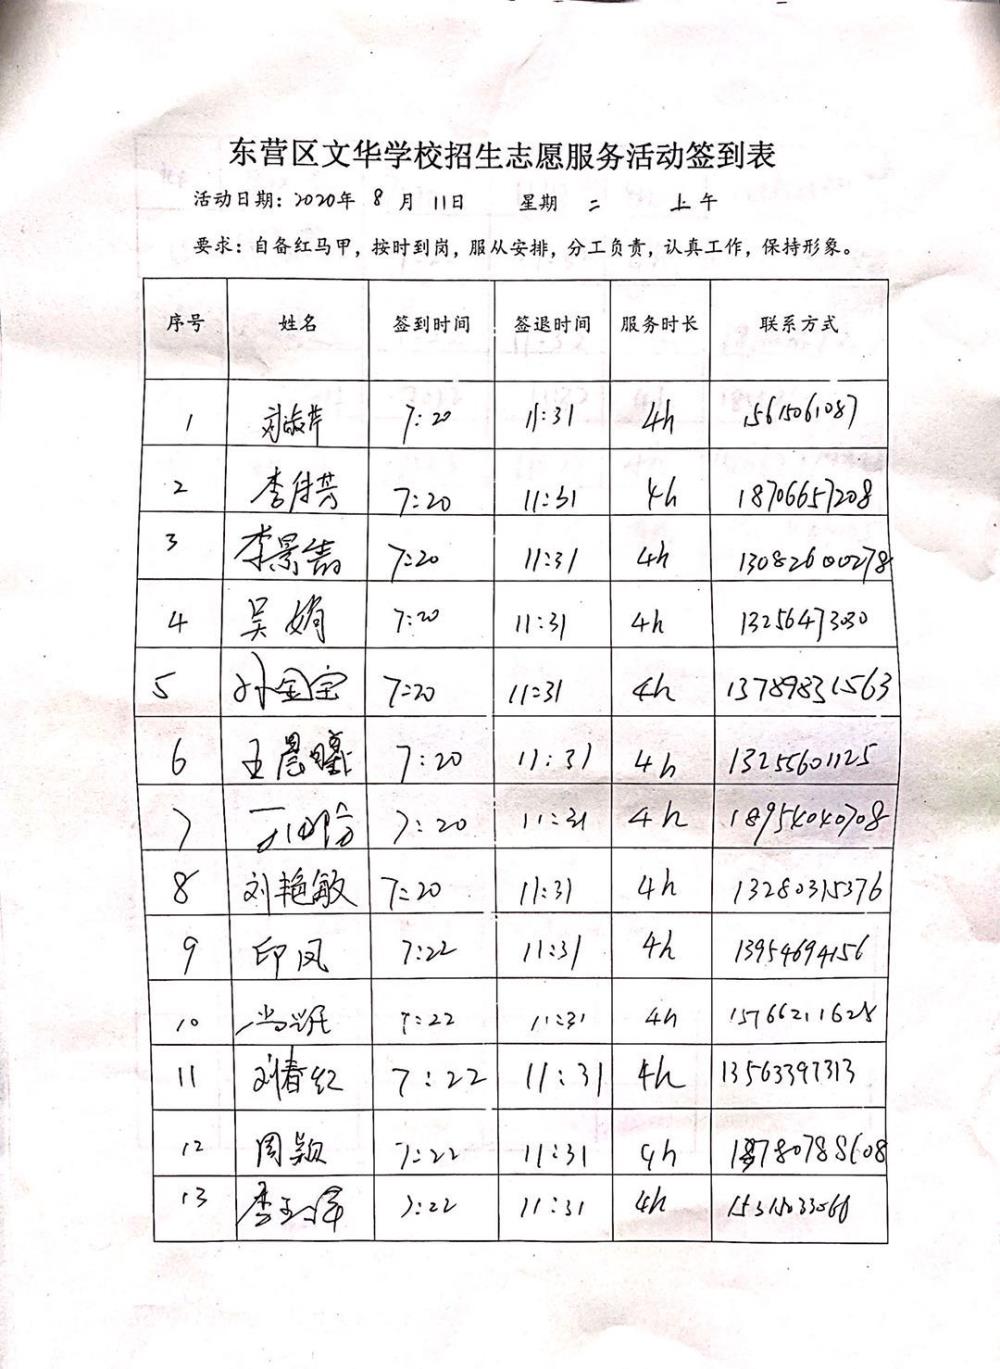 东营区文华学校招生志愿服务活动签到表
活动日期：2020年 8 月 11日 星期 二 上午
要求：自备红马甲，按时到岗，服从安排，分工负责，认真工作，保持形象。
序号 姓名 签到时间 签退时间 服务时长 联系方式
1 刘淑芹 7:20 11:31 4h 15615061087
2 李月芳 7:20 11:31 4h 18706657208
3 李景 7:20 11:31 4h 13082600278
4 吴娟 7:20 11:31 4h 13256473030
5 孙金宝 7:20 11:31 4h 13789831563
6 王晨曦 7:20 11:31 4h 13255601125
7 7:20 11:31 4h 18954040708
8 刘艳敏 7:20 11:31 4h 13280315376
9 印凤 7:22 11:31 4h 13954694156
10 7:22 11:31 4h 15766211628
11 刘春红 7:22 11:31 4h 13563397313
12 周颖 7:22 11:31 4h
13 李玉 7:22 11:31 4h